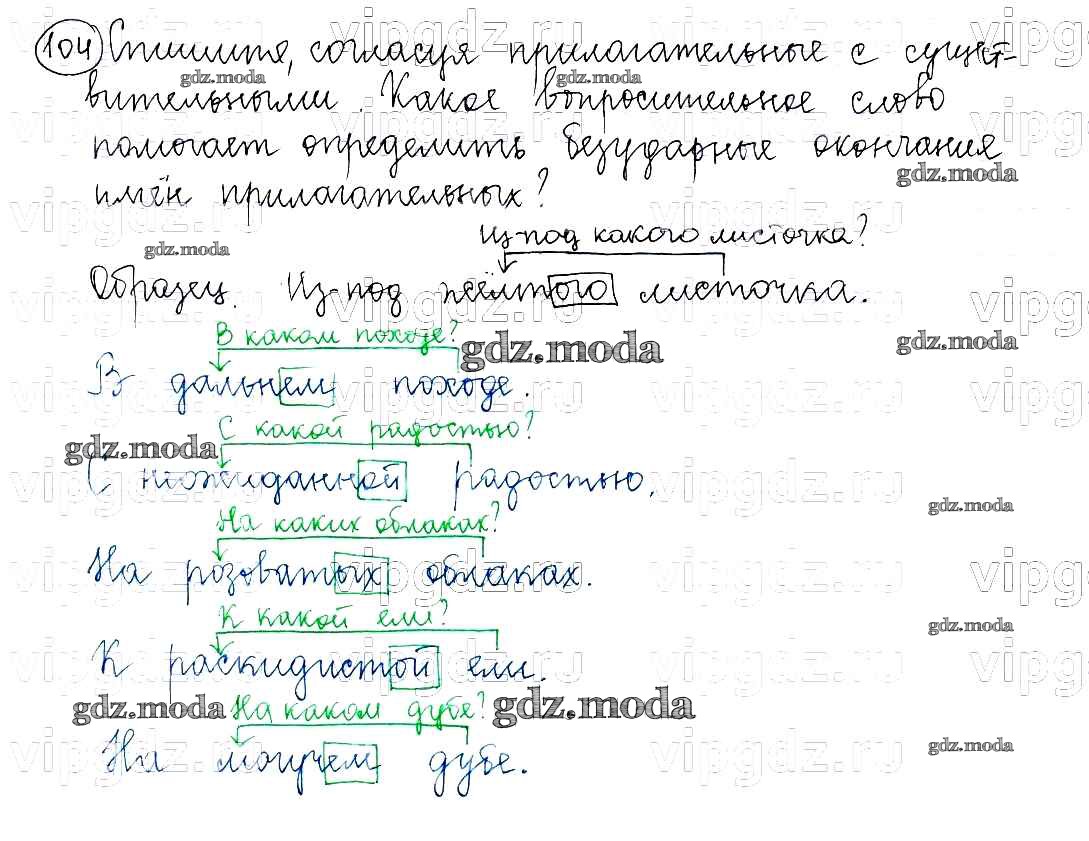 104 Спишите, согласуя прилагательные с сущест-
вительными. Какое вопросительное слово
помогает определить безударные окончания
имён прилагательных?
Из-под какого листочка?
Образец. Из-под жёлтого листочка.
В каком походе?
В дальнем походе.
С какой радостью?
С неожиданной радостью.
На каких облаках?
На розоватых облаках.
К какой ели?
К раскидистой ели.
На каком дубе?
На могучем дубе.
gdz.moda
vipgdz.ru